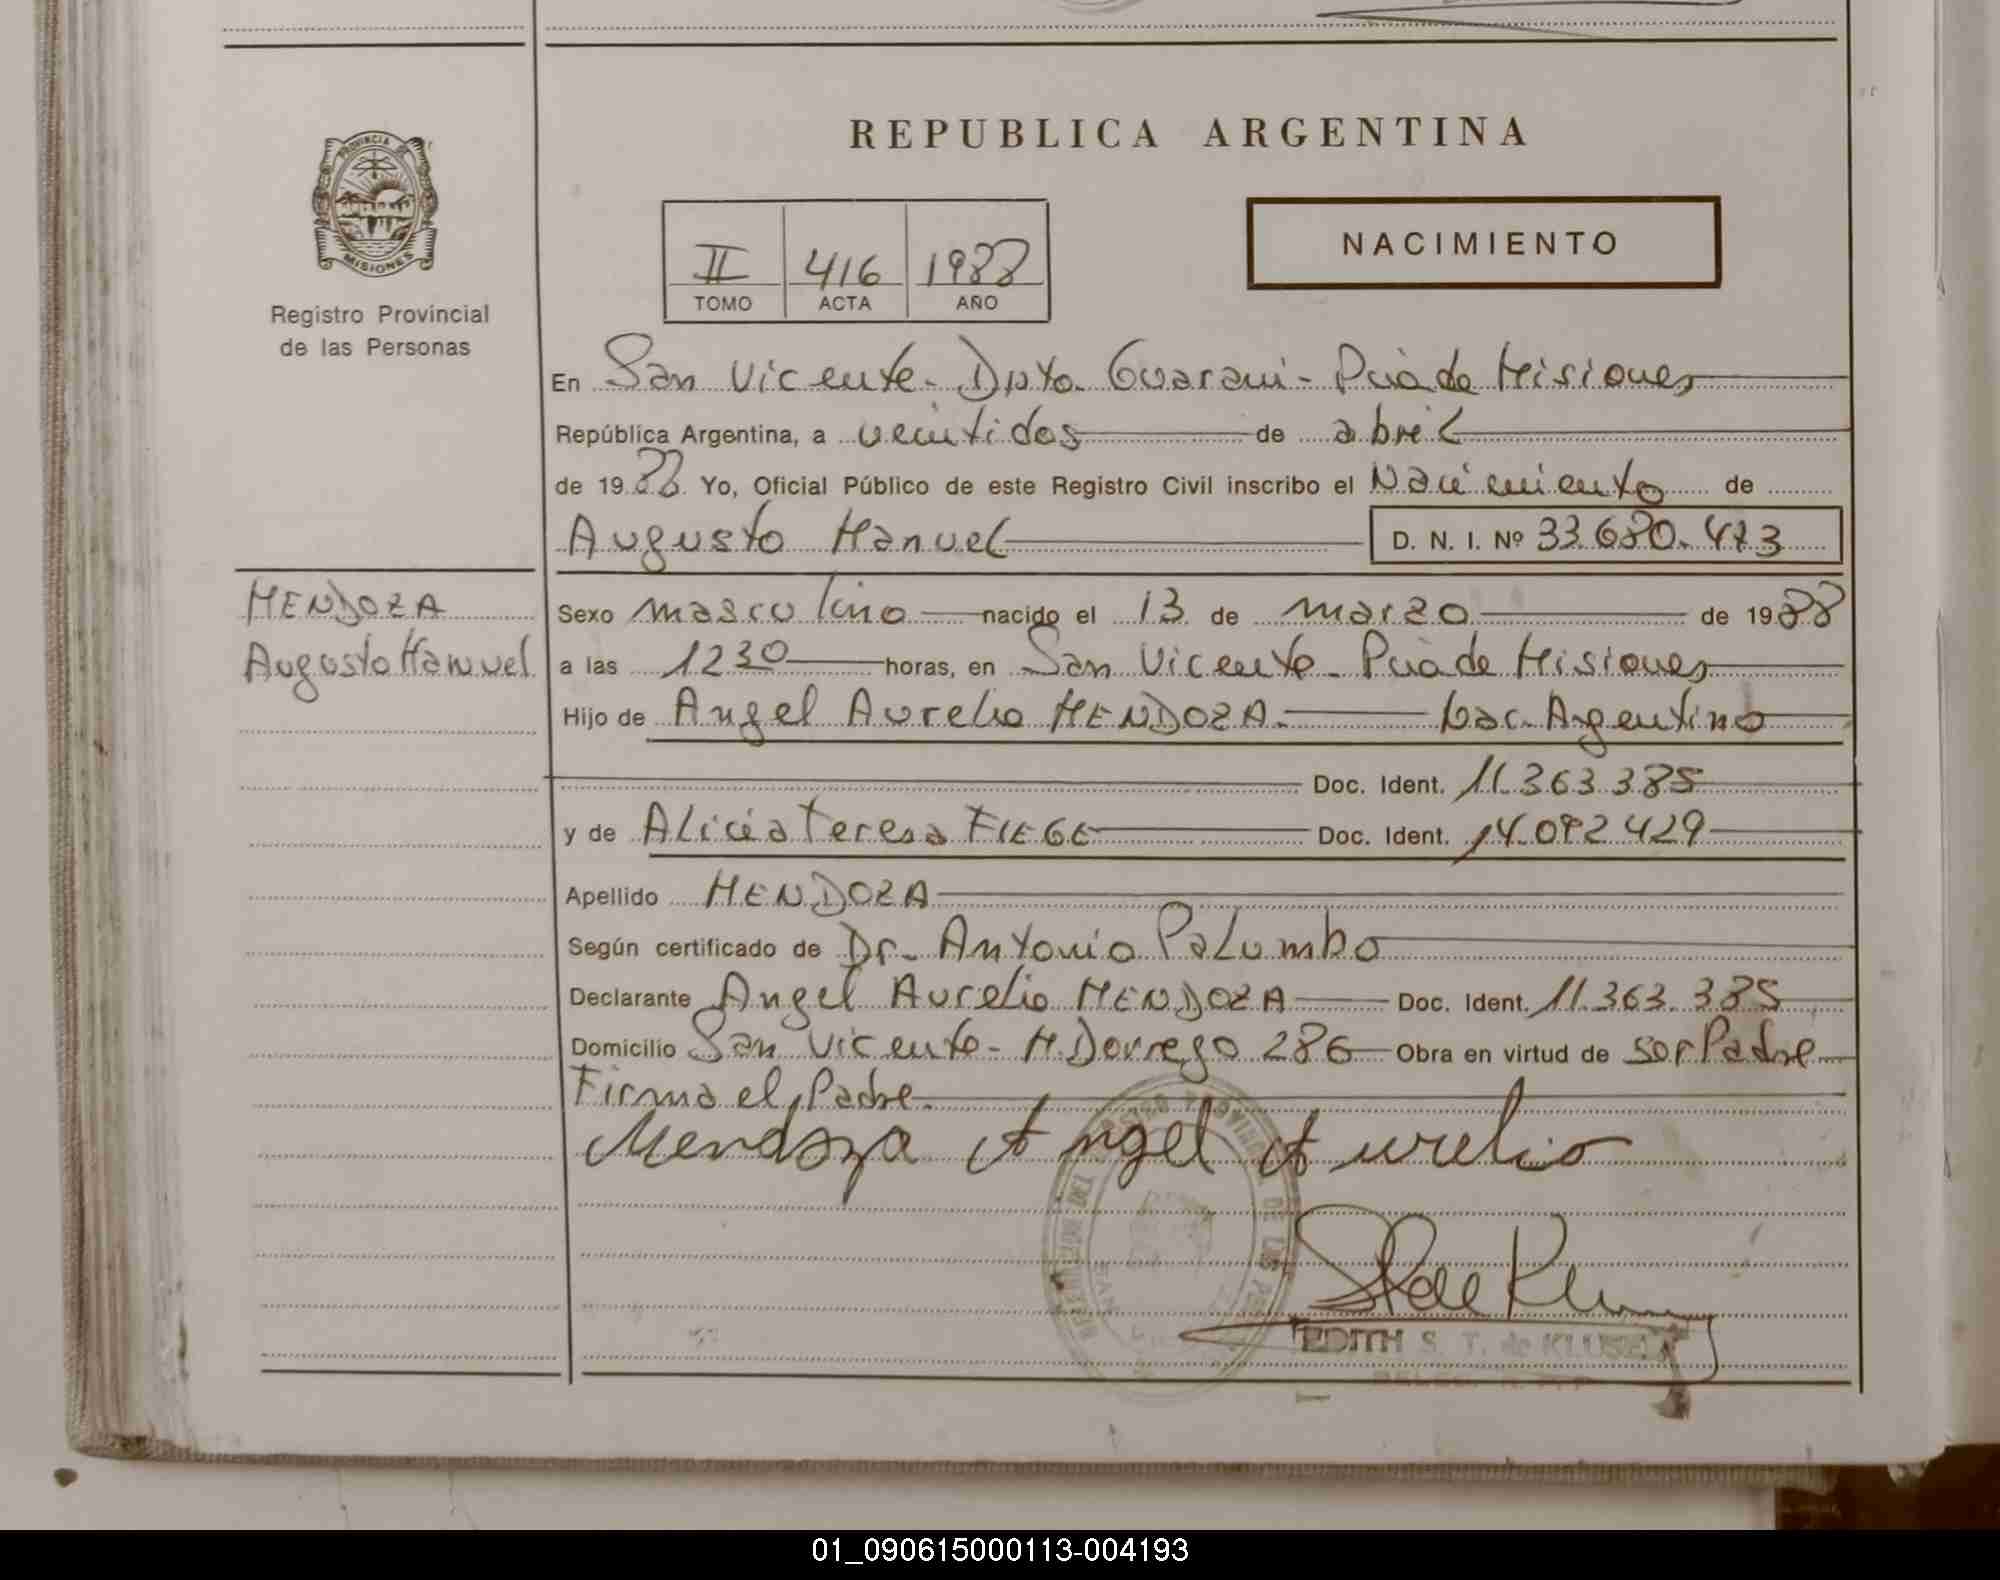 REPUBLICA ARGENTINA
PROVINCIA DE
MISIONES
Registro Provincial
de las Personas
II 416 1988
TOMO ACTA AÑO
NACIMIENTO
En San Vicente - Dpto. Guaraní - Pcia de Misiones
República Argentina, a veintidos de abril
de 1988 Yo, Oficial Público de este Registro Civil inscribo el Nacimiento de
Augusto Manuel D. N. I. Nº 33.680.473
MENDOZA
Augusto Manuel
Sexo masculino nacido el 13 de marzo de 1988
a las 1230 horas, en San Vicente - Pcia de Misiones
Hijo de Angel Aurelio MENDOZA. Nac. Argentino
Doc. Ident. 11.363.385
y de Alicia Teresa FIEGE Doc. Ident. 14.092.429
Apellido MENDOZA
Según certificado de Dr. Antonio Palumbo
Declarante Angel Aurelio MENDOZA Doc. Ident. 11.363.385
Domicilio San Vicente - M. Dorrego 286 Obra en virtud de ser Padre
Firma el Padre.
Mendoza Angel Aurelio
EDITH S. T. de KLUSE
01_090615000113-004193